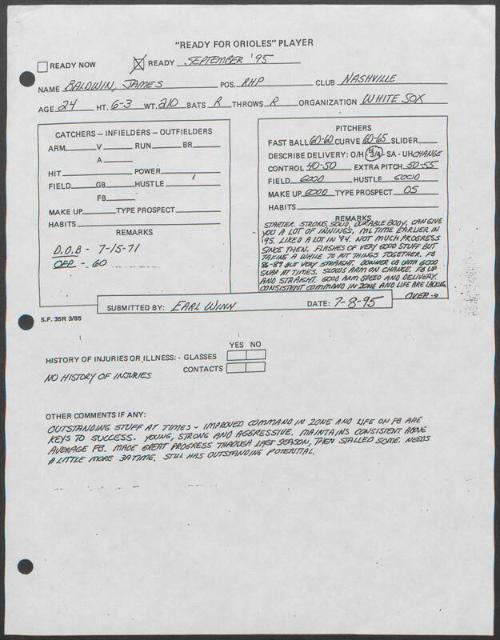 "READY FOR ORIOLES" PLAYER
READY NOW READY SEPTEMBER '95
NAME BALDWIN, JAMES POS. RHP CLUB NASHVILLE
AGE 24 HT. 6-3 WT. 210 BATS R THROWS R ORGANIZATION WHITE SOX
CATCHERS – INFIELDERS – OUTFIELDERS
ARM V RUN BR
A
HIT POWER
FIELD GB HUSTLE
FB
MAKE UP TYPE PROSPECT
HABITS
REMARKS
D.O.B - 7-15-71
OFP - 60
PITCHERS
FAST BALL 60-60 CURVE 60-65 SLIDER
DESCRIBE DELIVERY: O/H 3/4 - SA - UH CHANGE
CONTROL 40-50 EXTRA PITCH 50-55
FIELD GOOD HUSTLE GOOD
MAKE UP GOOD TYPE PROSPECT OS
HABITS
REMARKS
STARTER. STRONG, SOLID, DURABLE BODY. CAN GIVE
YOU A LOT OF INNINGS. ML TIME EARLIER IN
'95. LIKED A LOT IN '94. NOT MUCH PROGRESS
SINCE THEN. FLASHES OF VERY GOOD STUFF BUT
TAKING A WHILE TO PUT THINGS TOGETHER. FB
86-89 BUT VERY STRAIGHT. DOWNER CB WITH GOOD
SNAP AT TIMES. SLOWS ARM ON CHANGE. FB UP
AND STRAIGHT. GOOD ARM SPEED AND DELIVERY.
CONSISTENT COMMAND IN ZONE AND LIFE ARE LACKING.
OVER →
SUBMITTED BY: EARL WINN DATE: 7-8-95
S.F. 35R 3/85
YES NO
HISTORY OF INJURIES OR ILLNESS: - GLASSES
CONTACTS
NO HISTORY OF INJURIES
OTHER COMMENTS IF ANY:
OUTSTANDING STUFF AT TIMES - IMPROVED COMMAND IN ZONE AND LIFE ON FB ARE
KEYS TO SUCCESS. YOUNG, STRONG AND AGGRESSIVE. MAINTAINS CONSISTENT ABOVE
AVERAGE FB. MADE GREAT PROGRESS THROUGH LAST SEASON, THEN STALLED SOME. NEEDS
A LITTLE MORE 3A TIME. STILL HAS OUTSTANDING POTENTIAL.